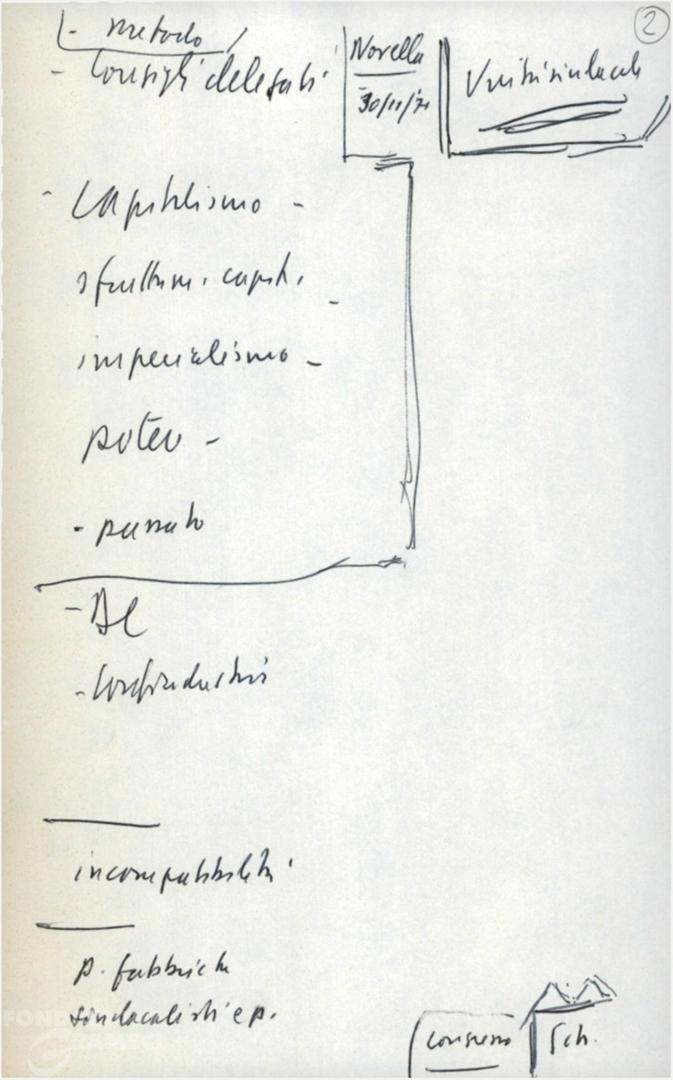 2
- metodo
- Consigli delegati
Novella
30/11/71
Unità sindacale
- Capitalismo -
sfruttam. capit. -
imperialismo -
potere -
- passato
- DC
- Confindustria
incompatibilità
p. fabbriche
sindacalisti e p.
congresso
Sch.